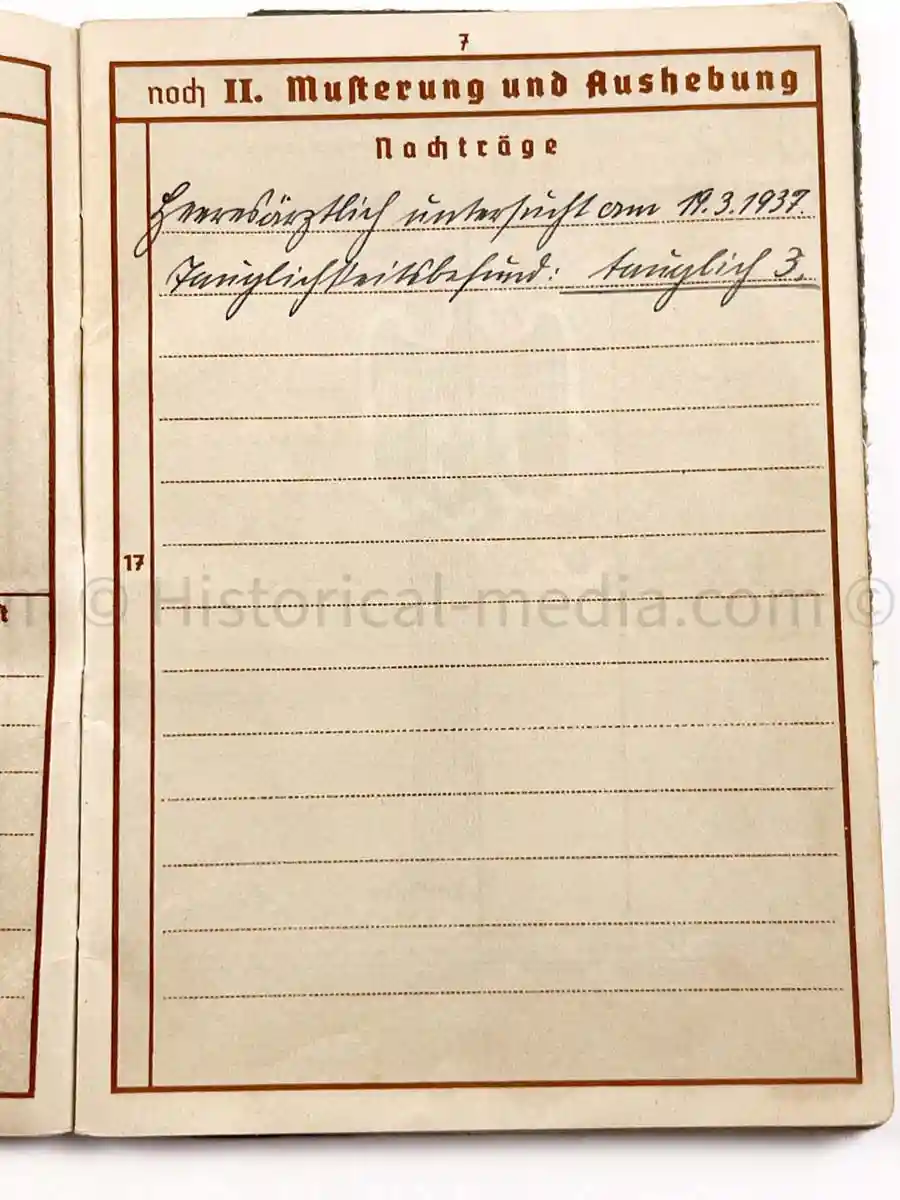 7
noch II. Musterung und Aushebung
Nachträge
Heeresärztlich untersucht am 19.3.1937.
Tauglichkeitsbefund: tauglich 3.
17
© Historical-media.com ©